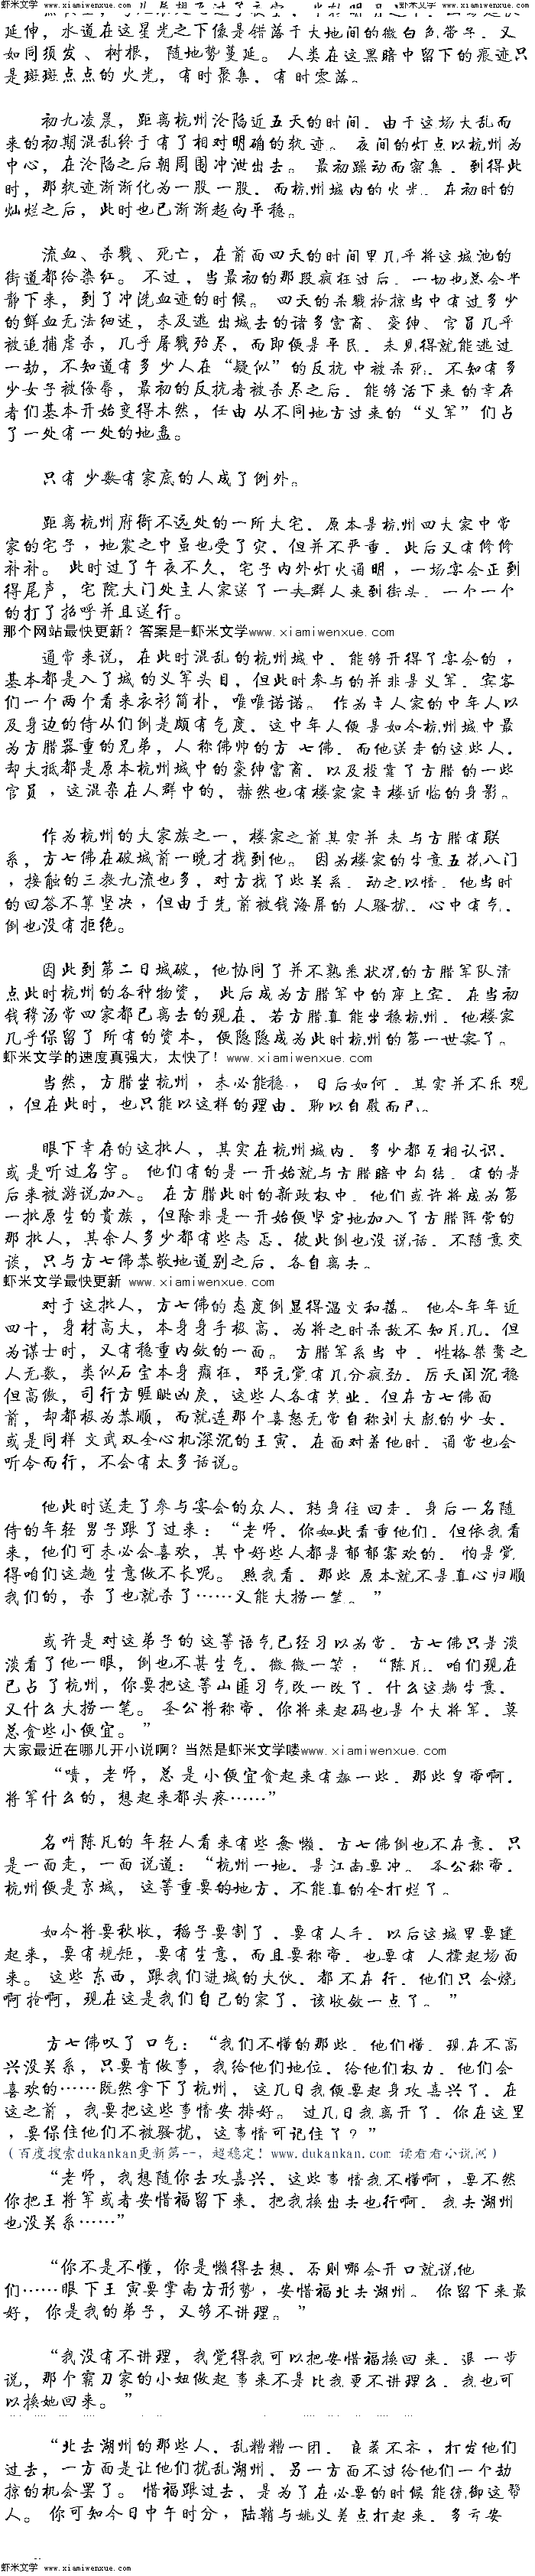 虾米文学 www.xiamiwenxue.com 虾米文学 www.xiamiwenxue.com
延伸，水道在这星光之下像是错落于大地间的微白色带子，又
如同须发、树根，随地势蔓延。人类在这黑暗中留下的痕迹只
是斑斑点点的火光，有时聚集，有时零落。
初九凌晨，距离杭州沦陷近五天的时间，由于这场大乱而
来的初期混乱终于有了相对明确的轨迹。夜间的灯点以杭州为
中心，在沦陷之后朝周围冲泄出去。最初躁动而密集，到得此
时，那轨迹渐渐化为一股一股，而杭州城内的火光，在初时的
灿烂之后，此时也已渐渐趋向平稳。
流血、杀戮、死亡，在前面四天的时间里几乎将这城池的
街道都给染红。不过，当最初的那段疯狂过后，一切也总会平
静下来，到了冲洗血迹的时候。四天的杀戮抢掠当中有过多少
的鲜血无法细述，未及逃出城去的诸多富商、豪绅、官员几乎
被追捕虐杀，几乎屠戮殆尽，而即便是平民，未见得就能逃过
一劫，不知道有多少人在“疑似”的反抗中被杀死，不知有多
少女子被侮辱，最初的反抗者被杀尽之后，能够活下来的幸存
者们基本开始变得木然，任由从不同地方过来的“义军”们占
了一处有一处的地盘。
只有少数有家底的人成了例外。
距离杭州府衙不远处的一所大宅，原本是杭州四大家中常
家的宅子，地震之中虽也受了灾，但并不严重，此后又有修修
补补。此时过了午夜不久，宅子内外灯火通明，一场宴会正到
得尾声，宅院大门处主人家送了一大群人来到街头，一个一个
的打了招呼并且送行。
那个网站最快更新？答案是-虾米文学www.xiamiwenxue.com
通常来说，在此时混乱的杭州城中，能够开得了宴会的，
基本都是入了城的义军头目，但此时参与的并非是义军，宾客
们一个两个看来衣衫简朴，唯唯诺诺。作为主人家的中年人以
及身边的侍从们倒是颇有气度，这中年人便是如今杭州城中最
为方腊器重的兄弟，人称佛帅的方七佛，而他送走的这些人，
却大抵都是原本杭州城中的豪绅富商，以及投靠了方腊的一些
官员，这混杂在人群中的，赫然也有楼家家主楼近临的身影。
作为杭州的大家族之一，楼家之前其实并未与方腊有联
系，方七佛在破城前一晚才找到他。因为楼家的生意五花八门
，接触的三教九流也多，对方找了些关系，动之以情，他当时
的回答不算坚决，但由于先前被钱海屏的人骚扰，心中有气，
倒也没有拒绝。
因此到第二日城破，他协同了并不熟悉状况的方腊军队清
点此时杭州的各种物资，此后成为方腊军中的座上宾，在当初
钱穆汤常四家都已离去的现在，若方腊真能坐稳杭州，他楼家
几乎保留了所有的资本，便隐隐成为此时杭州的第一世家了。
虾米文学的速度真强大，太快了！www.xiamiwenxue.com
当然，方腊坐杭州，未必能稳，日后如何，其实并不乐观
，但在此时，也只能以这样的理由，聊以自慰而已。
眼下幸存的这批人，其实在杭州城内，多少都互相认识，
或是听过名字。他们有的是一开始就与方腊暗中勾结，有的是
后来被游说加入。在方腊此时的新政权中，他们或许将成为第
一批原生的贵族，但除非是一开始便坚定地加入了方腊阵营的
那批人，其余人多少都有些忐忑，彼此倒也没说话，不随意交
谈，只与方七佛恭敬地道别之后，各自离去。
虾米文学最快更新 www.xiamiwenxue.com
对于这批人，方七佛的态度倒显得温文和蔼。他今年年近
四十，身材高大，本身身手极高，为将之时杀敌不知凡几，但
为谋士时，又有稳重内敛的一面。方腊军系当中，性格桀骜之
人无数，类似石宝本身癫狂，邓元觉有几分疯劲，厉天闰沉稳
但高傲，司行方睚眦凶戾，这些人各有其业，但在方七佛面
前，却都极为恭顺，而就连那个喜怒无常自称刘大彪的少女，
或是同样文武双全心机深沉的王寅，在面对着他时，通常也会
听令而行，不会有太多话说。
他此时送走了参与宴会的众人，转身往回走，身后一名随
侍的年轻男子跟了过来：“老师，你如此看重他们，但依我看
来，他们可未必会喜欢，其中好些人都是郁郁寡欢的，怕是觉
得咱们这趟生意做不长呢。照我看，那些原本就不是真心归顺
我们的，杀了也就杀了……又能大捞一笔。”
或许是对这弟子的这等语气已经习以为常，方七佛只是淡
淡看了他一眼，倒也不甚生气，微微一笑：“陈凡，咱们现在
已占了杭州，你要把这等山匪习气改一改了，什么这趟生意，
又什么大捞一笔。圣公将称帝，你将来起码也是个大将军，莫
总贪些小便宜。”
大家最近在哪儿看小说啊？当然是虾米文学喽www.xiamiwenxue.com
“啧，老师，总是小便宜贪起来有趣一些，那些皇帝啊，
将军什么的，想起来都头疼……”
名叫陈凡的年轻人看来有些惫懒，方七佛倒也不在意，只
是一面走，一面说道：“杭州一地，是江南要冲。圣公称帝，
杭州便是京城，这等重要的地方，不能真的全打烂了。
如今将要秋收，稻子要割了，要有人手，以后这城里要建
起来，要有规矩，要有生意，而且要称帝，也要有人撑起场面
来。这些东西，跟我们进城的大伙，都不在行，他们只会烧
啊抢啊，现在这是我们自己的家了，该收敛一点了。”
方七佛叹了口气：“我们不懂的那些，他们懂，现在不高
兴没关系，只要肯做事，我给他们地位，给他们权力，他们会
喜欢的……既然拿下了杭州，这几日我便要起身攻嘉兴了，在
这之前，我要把这些事情安排好。过几日我离开了，你在这里
，要保住他们不被骚扰，这事情可记住了？”
（百度搜索dukankan更新第--，超稳定！www.dukankan.com 读看看小说网）
“老师，我想随你去攻嘉兴，这些事情我不懂啊，要不然
你把王将军或者安惜福留下来，把我换出去也行啊，我去湖州
也没关系……”
“你不是不懂，你是懒得去想，否则哪会开口就说他
们……眼下王寅要掌南方形势，安惜福北去湖州。你留下来最
好，你是我的弟子，又够不讲理。”
“我没有不讲理，我觉得我可以把安惜福换回来，退一步
说，那个霸刀家的小妞做起事来不是比我更不讲理么，我也可
以换她回来。”
“北去湖州的那些人，乱糟糟一团，良莠不齐，打发他们
过去，一方面是让他们扰乱湖州，另一方面不过给他们一个劫
掠的机会罢了。惜福跟过去，是为了在必要的时候能统御这帮
人。你可知今日中午时分，陆鞘与姚义差点打起来，多亏安
虾米文学 www.xiamiwenxue.com